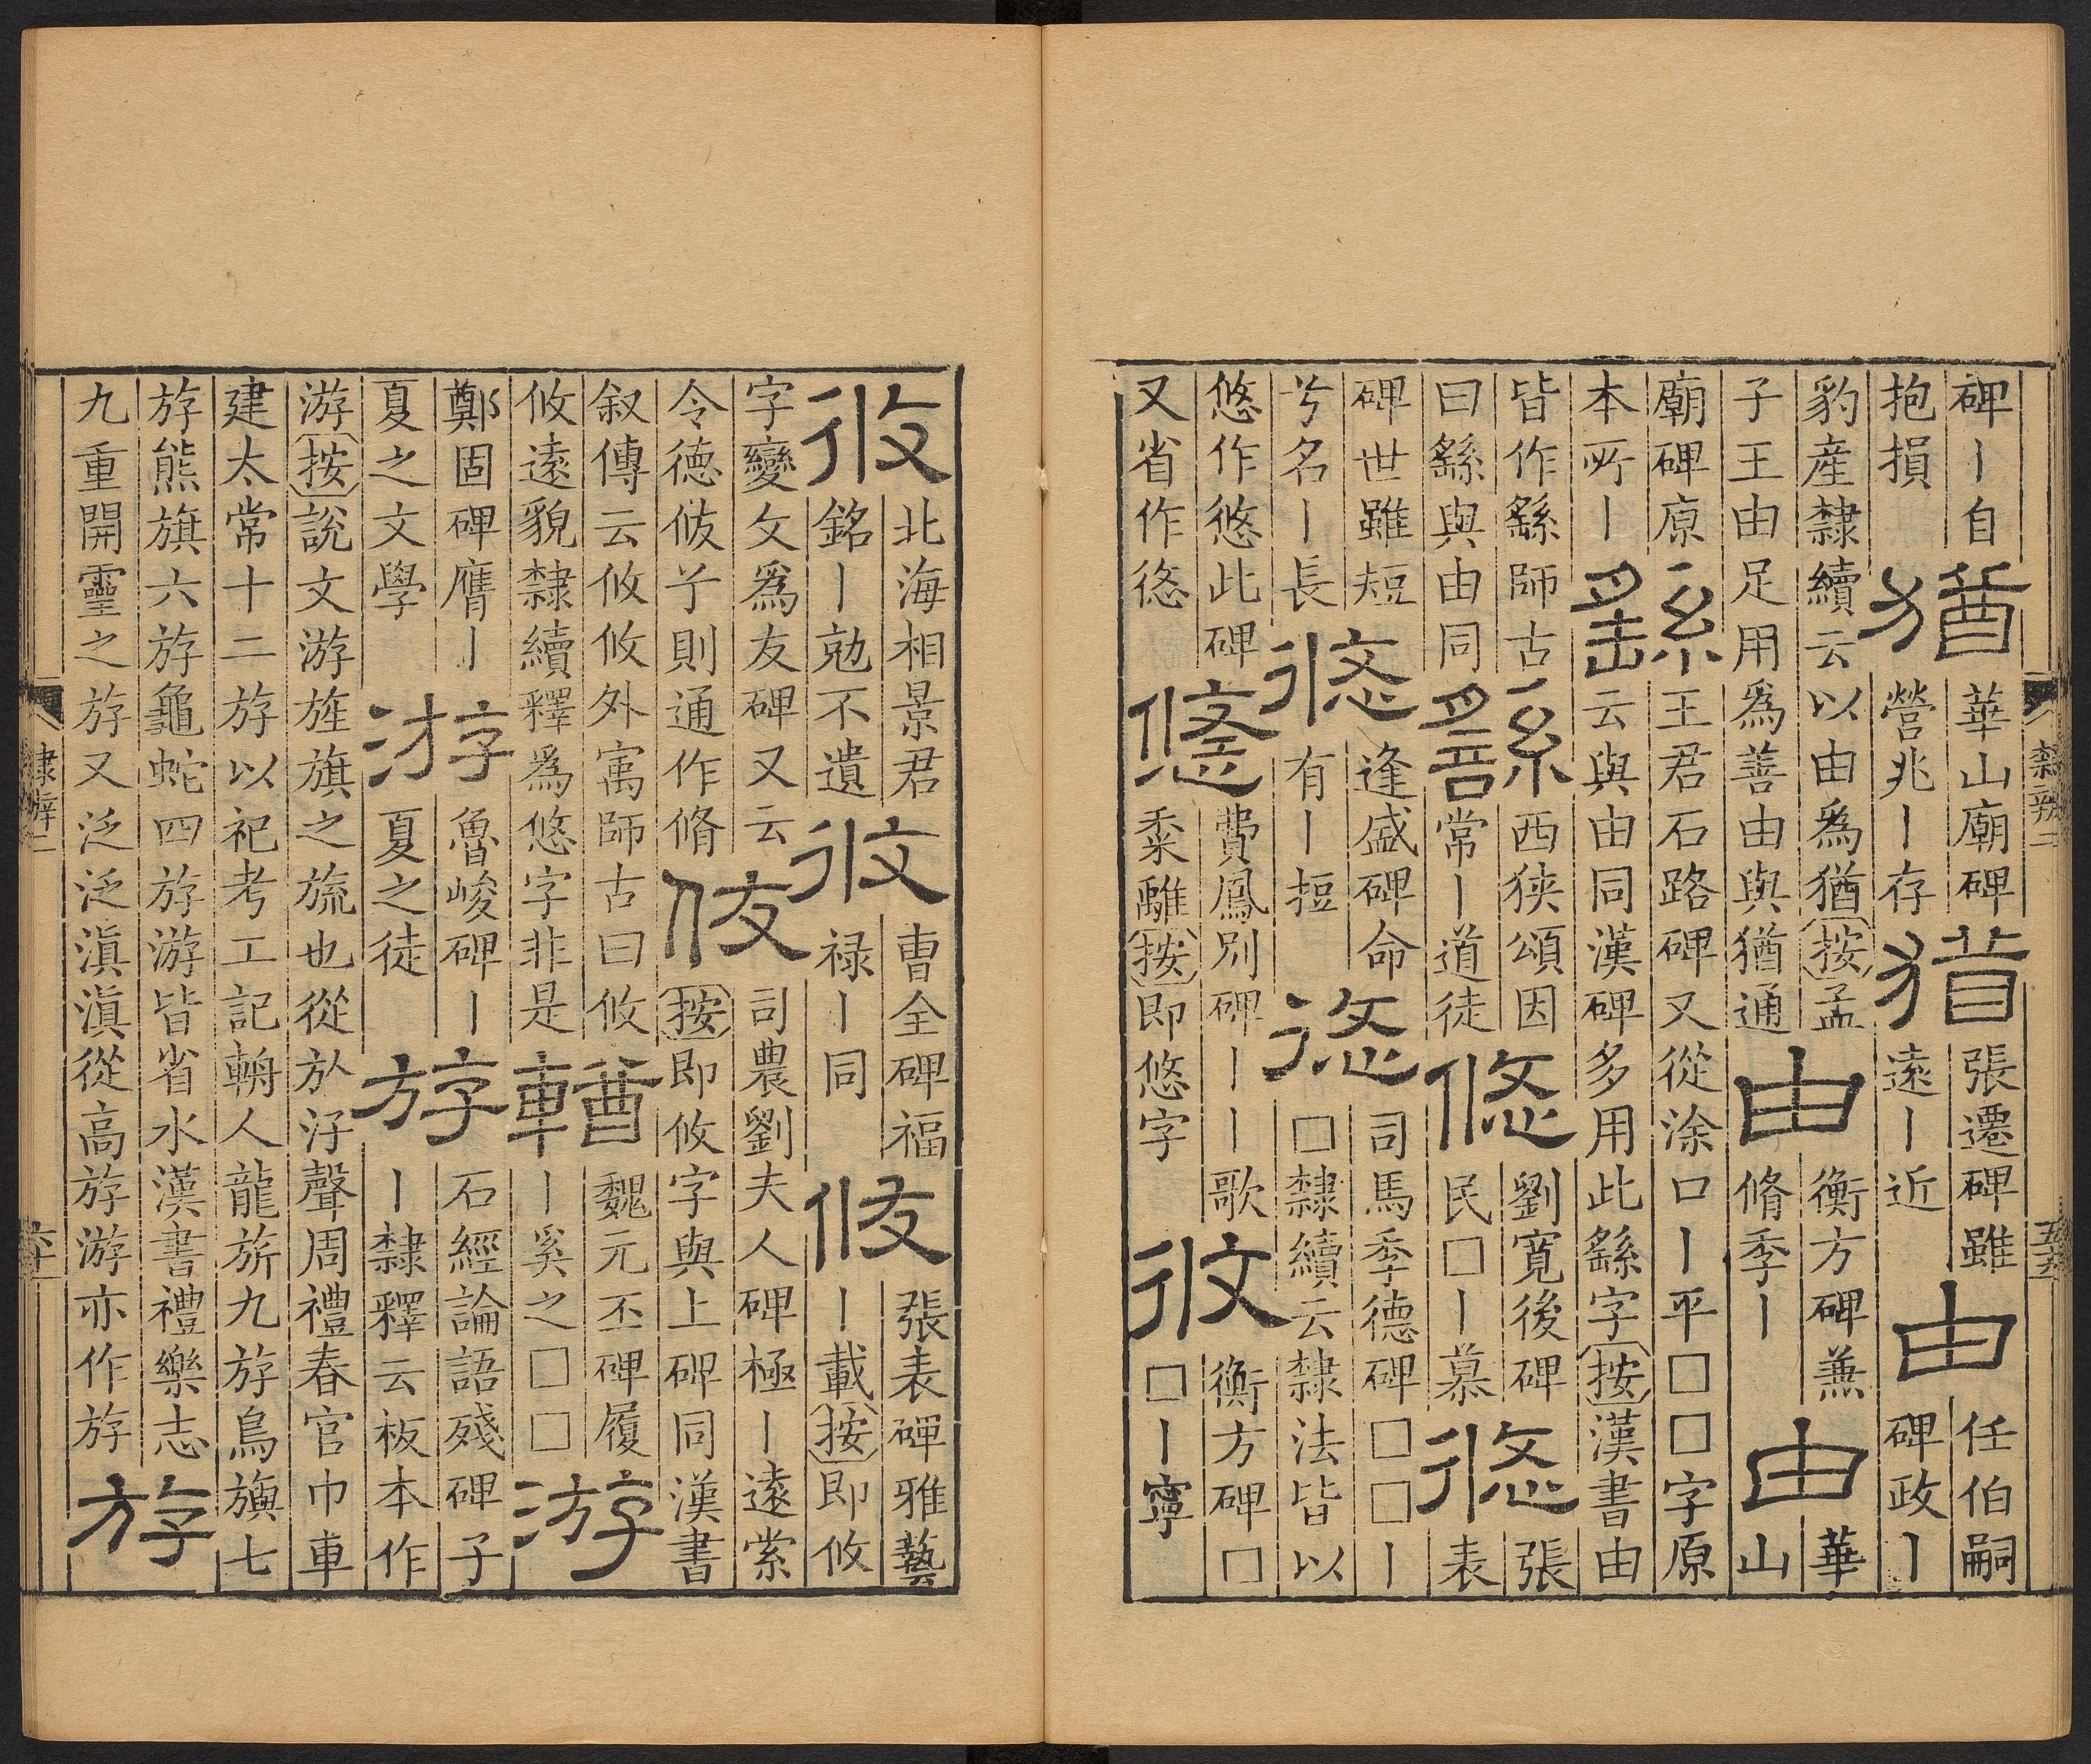 碑丨自抱損猶華山廟碑營兆丨存猶張遷碑雖遠丨近由任伯嗣碑政丨
豹産隸續云以由爲猶按孟子王由足用爲善由與猶通由衡方碑兼脩季丨由華山
廟碑原本所丨繇王君石路碑又從涂口丨平□□字原云與由同漢碑多用此繇字按漢書由
皆作繇師古曰繇與由同繇西狹頌因常丨道徒悠劉寬後碑民□丨慕悠張表
碑世雖短兮名丨長悠逢盛碑命有丨短悠司馬季德碑□□丨□隸續云隸法皆以
悠作悠此碑又省作悠悠費鳳別碑丨丨丨歌黍離按即悠字攸衡方碑□□丨寧
隸辨二
五十九
攸北海相景君銘丨勉不遺攸曹全碑福祿丨同攸張表碑雅藝丨載按即攸
字變攵爲友碑又云令德攸兮則通作脩攸司農劉夫人碑極丨遠索按即攸字與上碑同漢書
叙傳云攸攸外寓師古曰攸攸遠貌隸續釋爲悠字非是輶魏元丕碑履丨奚之□□游
鄭固碑膺丨夏之文學游魯峻碑丨夏之徒游石經論語殘碑子丨隸釋云板本作
游按說文游旌旗之旒也從㫃汓聲周禮春官巾車建太常十二斿以祀考工記輈人龍旂九斿鳥旟七
斿熊旗六斿龜蛇四斿游皆省水漢書禮樂志九重開靈之斿又泛泛滇滇從高斿游亦作斿斿
隸辨二
六十